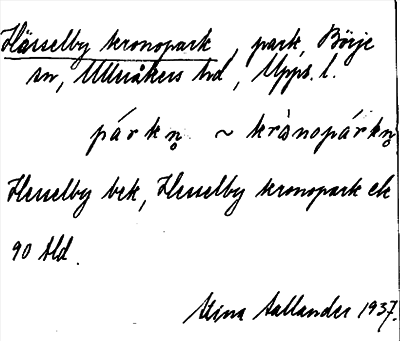 Hässelby kronopark, park, Börje
sn, Ulleråkers hd, Upps. l.
párkn̥ ~ krònopárkn̥
Hesselby bek, Hesselby kronopark ek
90 bld.
Stina Sallander 1937.